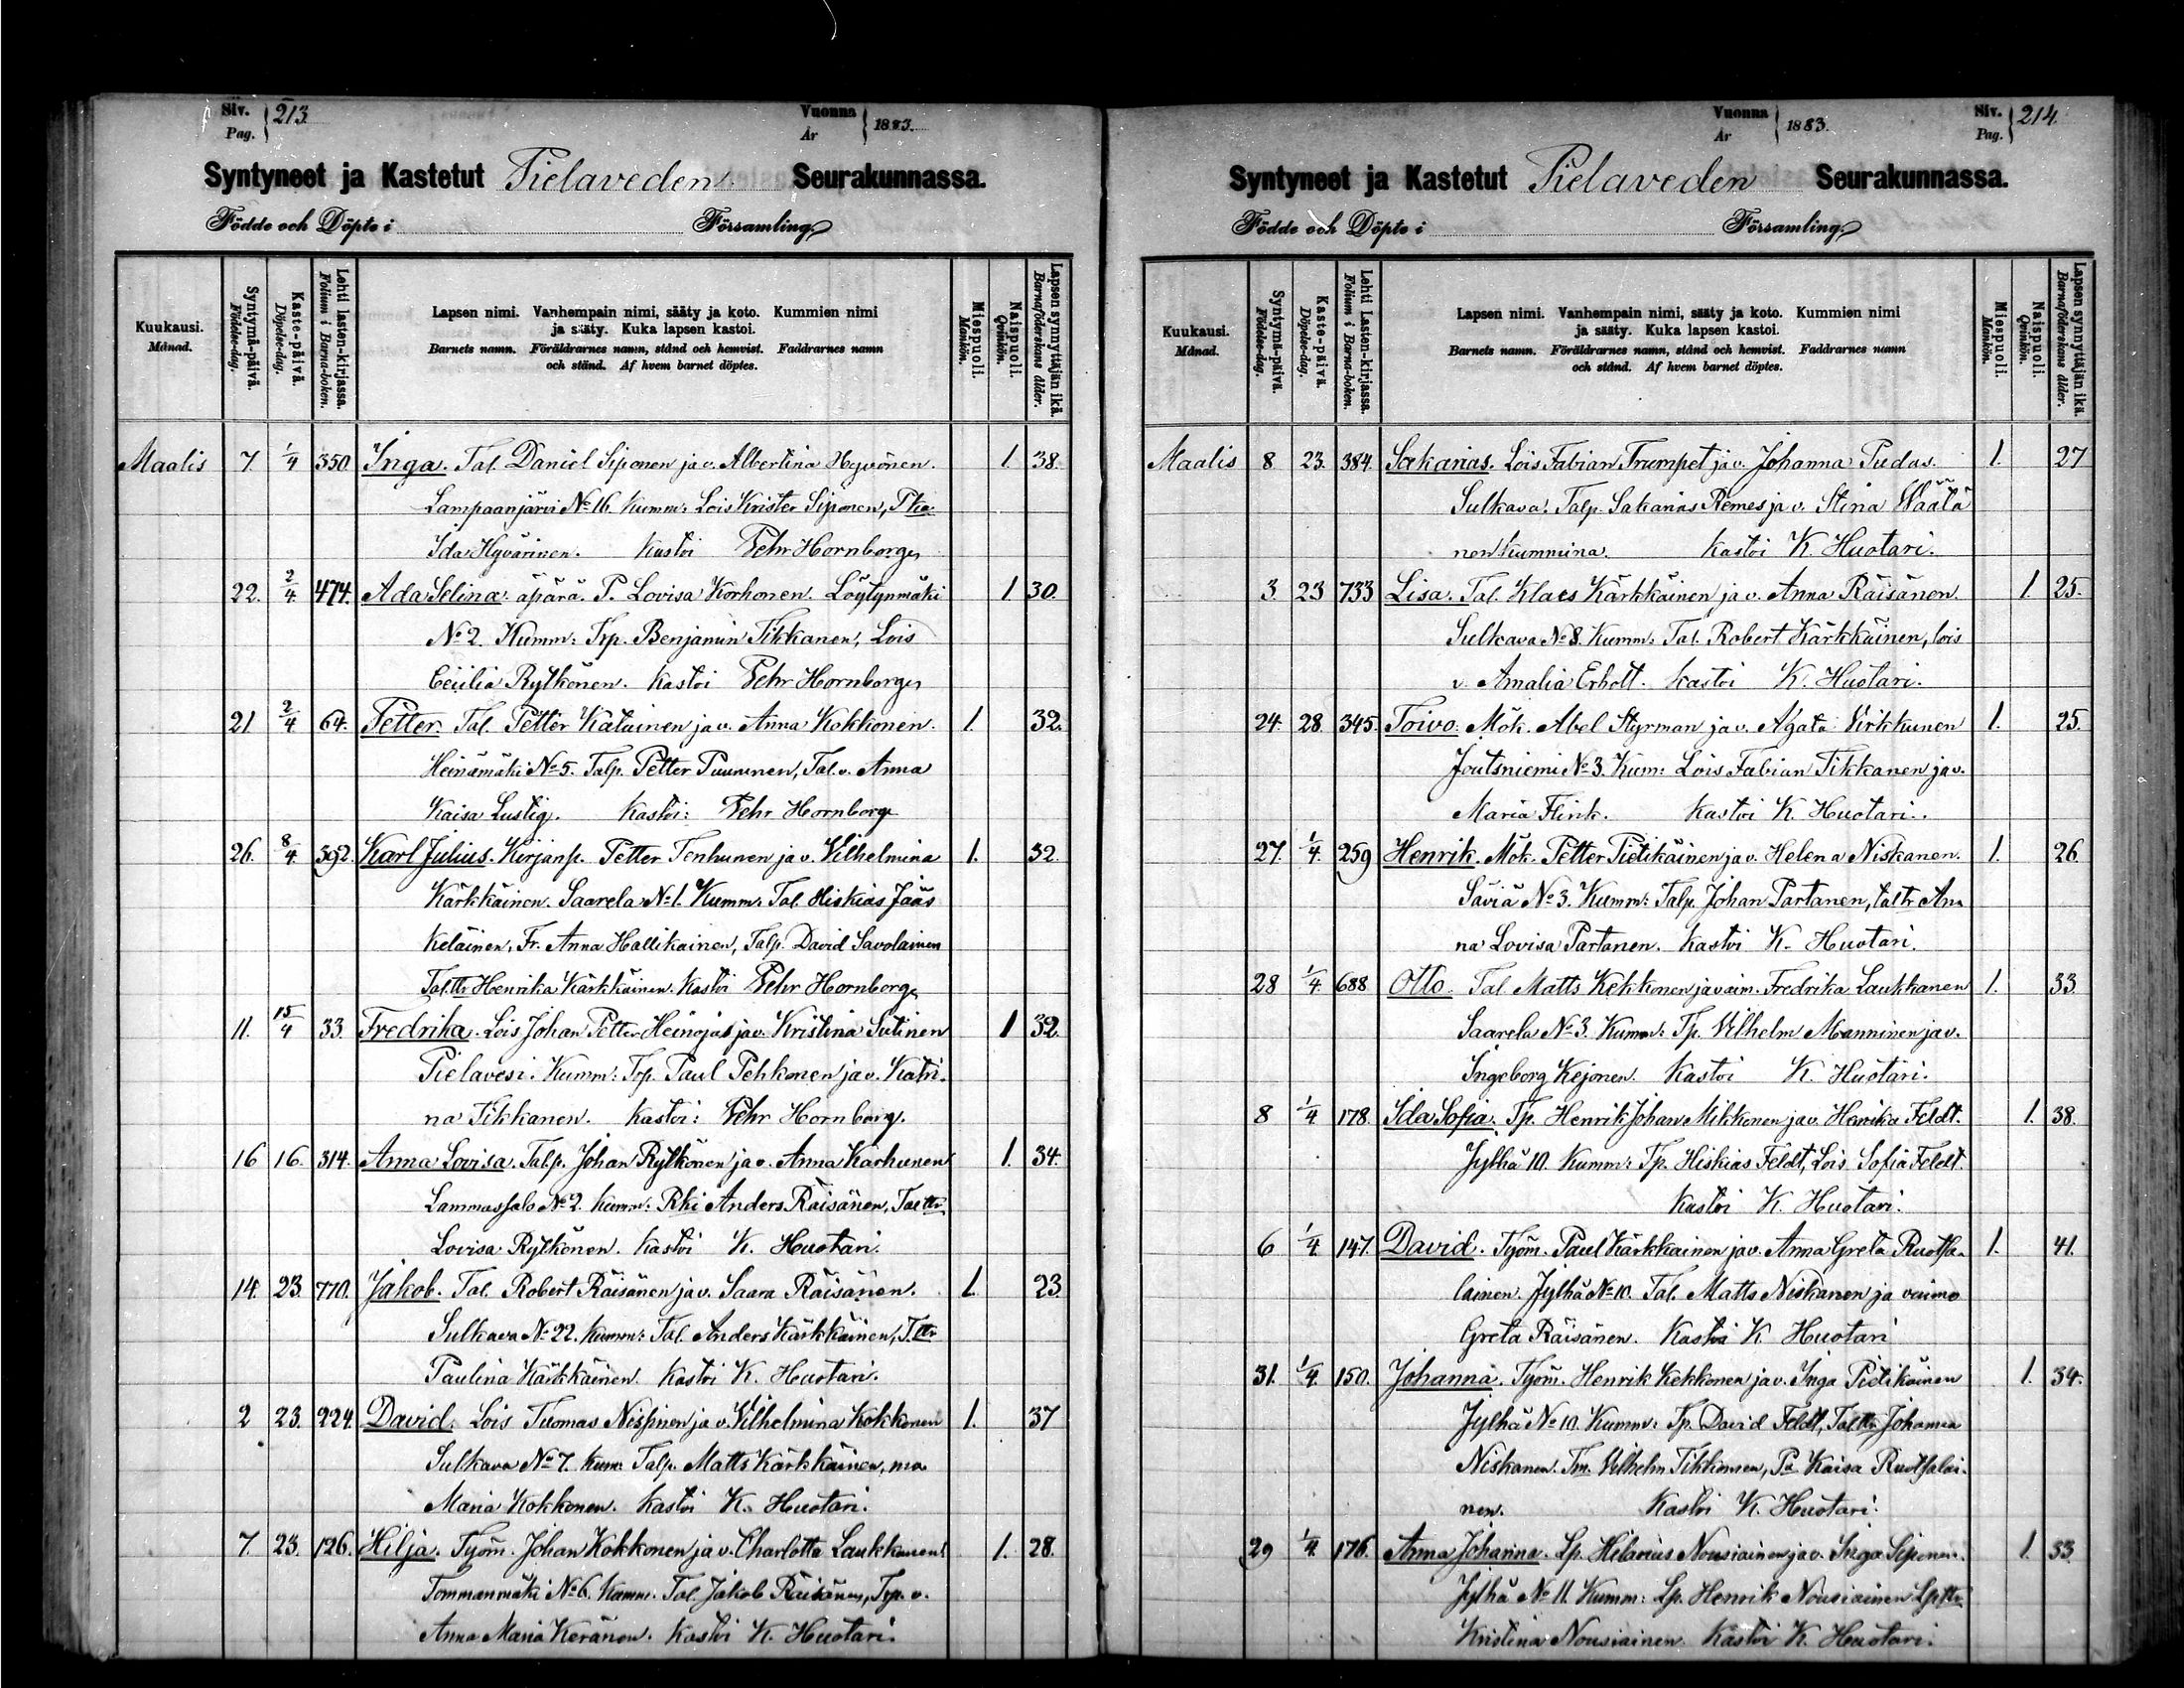 Siv. Pag. 213.
Vuonna År 1883.
Syntyneet ja Kastetut Pielaveden Seurakunnassa.
Födde och Döpte i Församling
Kuukausi. Månad.
Syntymä-päivä. Födelse-dag.
Kaste-päivä. Döpelse-dag.
Lehti lasten-kirjassa. Folium i Barna-boken.
Lapsen nimi. Vanhempain nimi, sääty ja koto. Kummien nimi
ja sääty. Kuka lapsen kastoi.
Barnets namn. Föräldrarnes namn, stånd och hemvist. Faddrarnes namn
och stånd. Af hvem barnet döptes.
Miespuoli. Mankön.
Naispuoli. Qvinkön.
Lapsen synnyttäjän ikä. Barnaföderskans ålder.
Maalis 7. 1/4 350. Inga. Tal. Daniel Siponen ja v. Albertina Hyvönen. 1. 38.
Lampaanjärvi No 16. Kumm: Lois Krister Siponen, P.ka
Ida Hyvärinen. Kastoi Pehr Hornborg
22. 2/4 474. Ada Selina. äpärä. P. Lovisa Korhonen. Löytynmäki 1. 30.
No 2. Kumm: Trp. Benjamin Tikkanen, Lois
Cecilia Rytkönen. Kastoi Pehr Hornborg
21 2/4 64. Petter. Tal. Petter Katainen ja v. Anna Kokkonen. 1. 32.
Heinämäki No 5. Talp. Petter Puurunen, Tal. v. Anna
Kaisa Lustig. Kastoi: Pehr Hornborg
26. 8/4 392. Karl Julius. Kirjanp. Petter Tenhunen ja v. Vilhelmina 1. 32.
Kärkkäinen. Saarela No 1. Kumm: Tal. Hiskias Jääs
keläinen, Fr. Anna Hallikainen, Talp. David Savolainen
Tal.ttr Henrika Kärkkäinen. Kastoi Pehr Hornborg
11. 15/4 33. Fredrika. Lois Johan Petter Heinojas ja v. Kristina Sutinen 1 32.
Pielavesi. Kumm: Trp. Paul Pehkonen ja v. Katri.
na Tikkanen. Kastoi: Pehr Hornborg.
16 16. 314. Anna Lovisa. Talp. Johan Rytkönen ja v. Anna Karhunen 1. 34.
Lammassalo No 2. Kumm: Rki Anders Räisänen, Tal ttr
Lovisa Rytkönen. Kastoi K. Huotari.
14. 23. 770. Jakob. Tal. Robert Räisänen ja v. Saara Räisänen. 1. 23.
Sulkava No 22. Kumm: Tal. Anders Kärkkäinen, T.ttr
Paulina Kärkkäinen. Kastoi K. Huotari.
2 23. 224. David. Lois Thomas Nispinen ja v. Vilhelmina Kokkonen 1. 37
Sulkava No 7. Kum: Talp. Matts Kärkkäinen,
Maria Kokkonen. Kastoi K. Huotari.
7. 23. 126. Hilja. Työm. Johan Kokkonen ja v. Charlotta Laukkanen. 1. 28.
Tommanmäki No 6. Kumm. Tal. Jakob Räisänen, Trp. v.
Anna Maria Keränen. Kastoi K. Huotari.
Vuonna År 1883.
Siv. Pag. 214.
Syntyneet ja Kastetut Pielaveden Seurakunnassa.
Födde och Döpte i Församling
Kuukausi. Månad.
Syntymä-päivä. Födelse-dag.
Kaste-päivä. Döpelse-dag.
Lehti Lasten-kirjassa. Folium i Barna-boken.
Lapsen nimi. Vanhempain nimi, sääty ja koto. Kummien nimi
ja sääty. Kuka lapsen kastoi.
Barnets namn. Föräldrarnes namn, stånd och hemvist. Faddrarnes namn
och stånd. Af hvem barnet döptes.
Miespuoli. Mankön.
Naispuoli. Qvinkön.
Lapsen synnyttäjän ikä. Barnaföderskans ålder.
Maalis 8. 23. 384. Sakarias. Lois Fabian Trumpet ja v. Johanna Pudas. 1. 27
Sulkava. Talp. Sakarias Remes ja v. Stina Väätä
nen kummina. Kastoi K. Huotari.
3. 23 733 Lisa. Tal. Klaes Kärkkäinen ja v. Anna Räisänen 1. 25.
Sulkava No 8. Kumm: Tal. Robert Kärkkäinen, lois
v. Amalia Erholt. Kastoi K. Huotari.
24. 28. 345. Toivo. Mök. Abel Styrman ja v. Agata Virkkunen 1. 25.
Joutsniemi No 3. Kum: Lois Fabian Tikkanen ja v.
Maria Flink. Kastoi K. Huotari.
27. 1/4. 259 Henrik. Mök. Petter Pietikäinen ja v. Helena Niskanen. 1. 26.
Säviä No 3. Kumm: Talp. Johan Partanen, tal tr An
na Lovisa Partanen. Kastoi K. Huotari.
28 1/4. 688 Otto. Tal. Matts Kekkonen ja vaim. Fredrika Laukkanen 1. 33
Saarela No 3. Kumm: Tp. Vilhelm Manninen ja v.
Ingeborg Kejonen. Kastoi K. Huotari.
8 1/4. 178. Ida Sofia. Tp. Henrik Johan Mikkonen ja v. Henrika Feldt. 1. 38.
Jylhä 10. Kumm: Tp. Hiskias Feldt, Lois. Sofia Feldt.
Kastoi K. Huotari.
6 1/4. 147. David. Työm. Paul Kärkkäinen ja v. Anna Greta Ruotsa- 1. 41.
lainen. Jylhä No 10. Tal. Matts Niskanen ja vaimo
Greta Räisänen. Kastoi K. Huotari
31. 1/4. 150. Johanna. Työm. Henrik Kekkonen ja v. Inga Pietikäinen 1. 34.
Jylhä No 10. Kumm: Tp. David Feldt, Tal ttr Johanna
Niskanen. Tm. Vilhelm Tikkanen, Pa Kaisa Ruotsalai-
nen. Kastoi K. Huotari.
29 1/4. 176. Anna Johanna. Lp. Hilarius Nousiainen ja v. Inga Siponen. 1. 33.
Jylhä No 11. Kumm: Lp. Henrik Nousiainen Lp ttr
Kristina Nousiainen Kastoi K. Huotari.